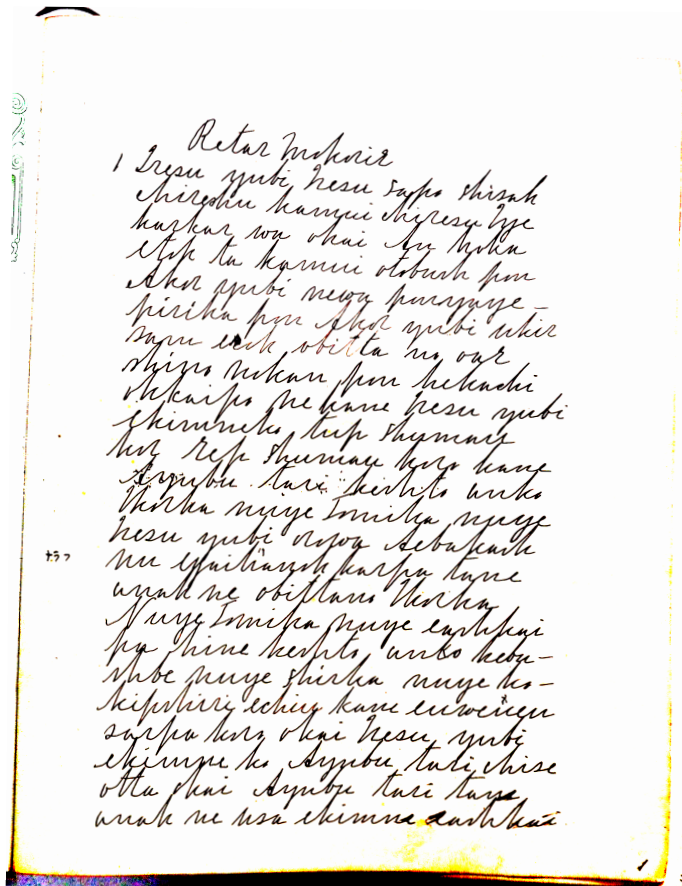 Retar Mokorir
1 Iresu yubi Iresu sapo shisak
chireshu kamui chiresu Iye
karkar wa okai An hoka
etok ta kamui otobush pon
Akor yubi newa ponyuye-
pirika pon Akor yubi ukir
sam ek obitta no oar
shino nokan pon hekachi
okkaipo ne kane Iresu yubi
ekimneko tup shumau
kor rep shumau koro kane
Ayubu tari keshto anko
Ikorka nuye Tomika nuye
Iresu yubi orowa
nu karpa tane
anak ne obittano Ikorka
Nuye Tomika nuye eashkai
pa hine keshto anko kebu-
shbe nuye shirka nuye ko-
kipshiri echiu kane
sarpa koro okai Iresu yubi
ekimne ko Ayubu tari chise
otta okai Ayubu tari tane
anak ne usa ekimne eashkai
1